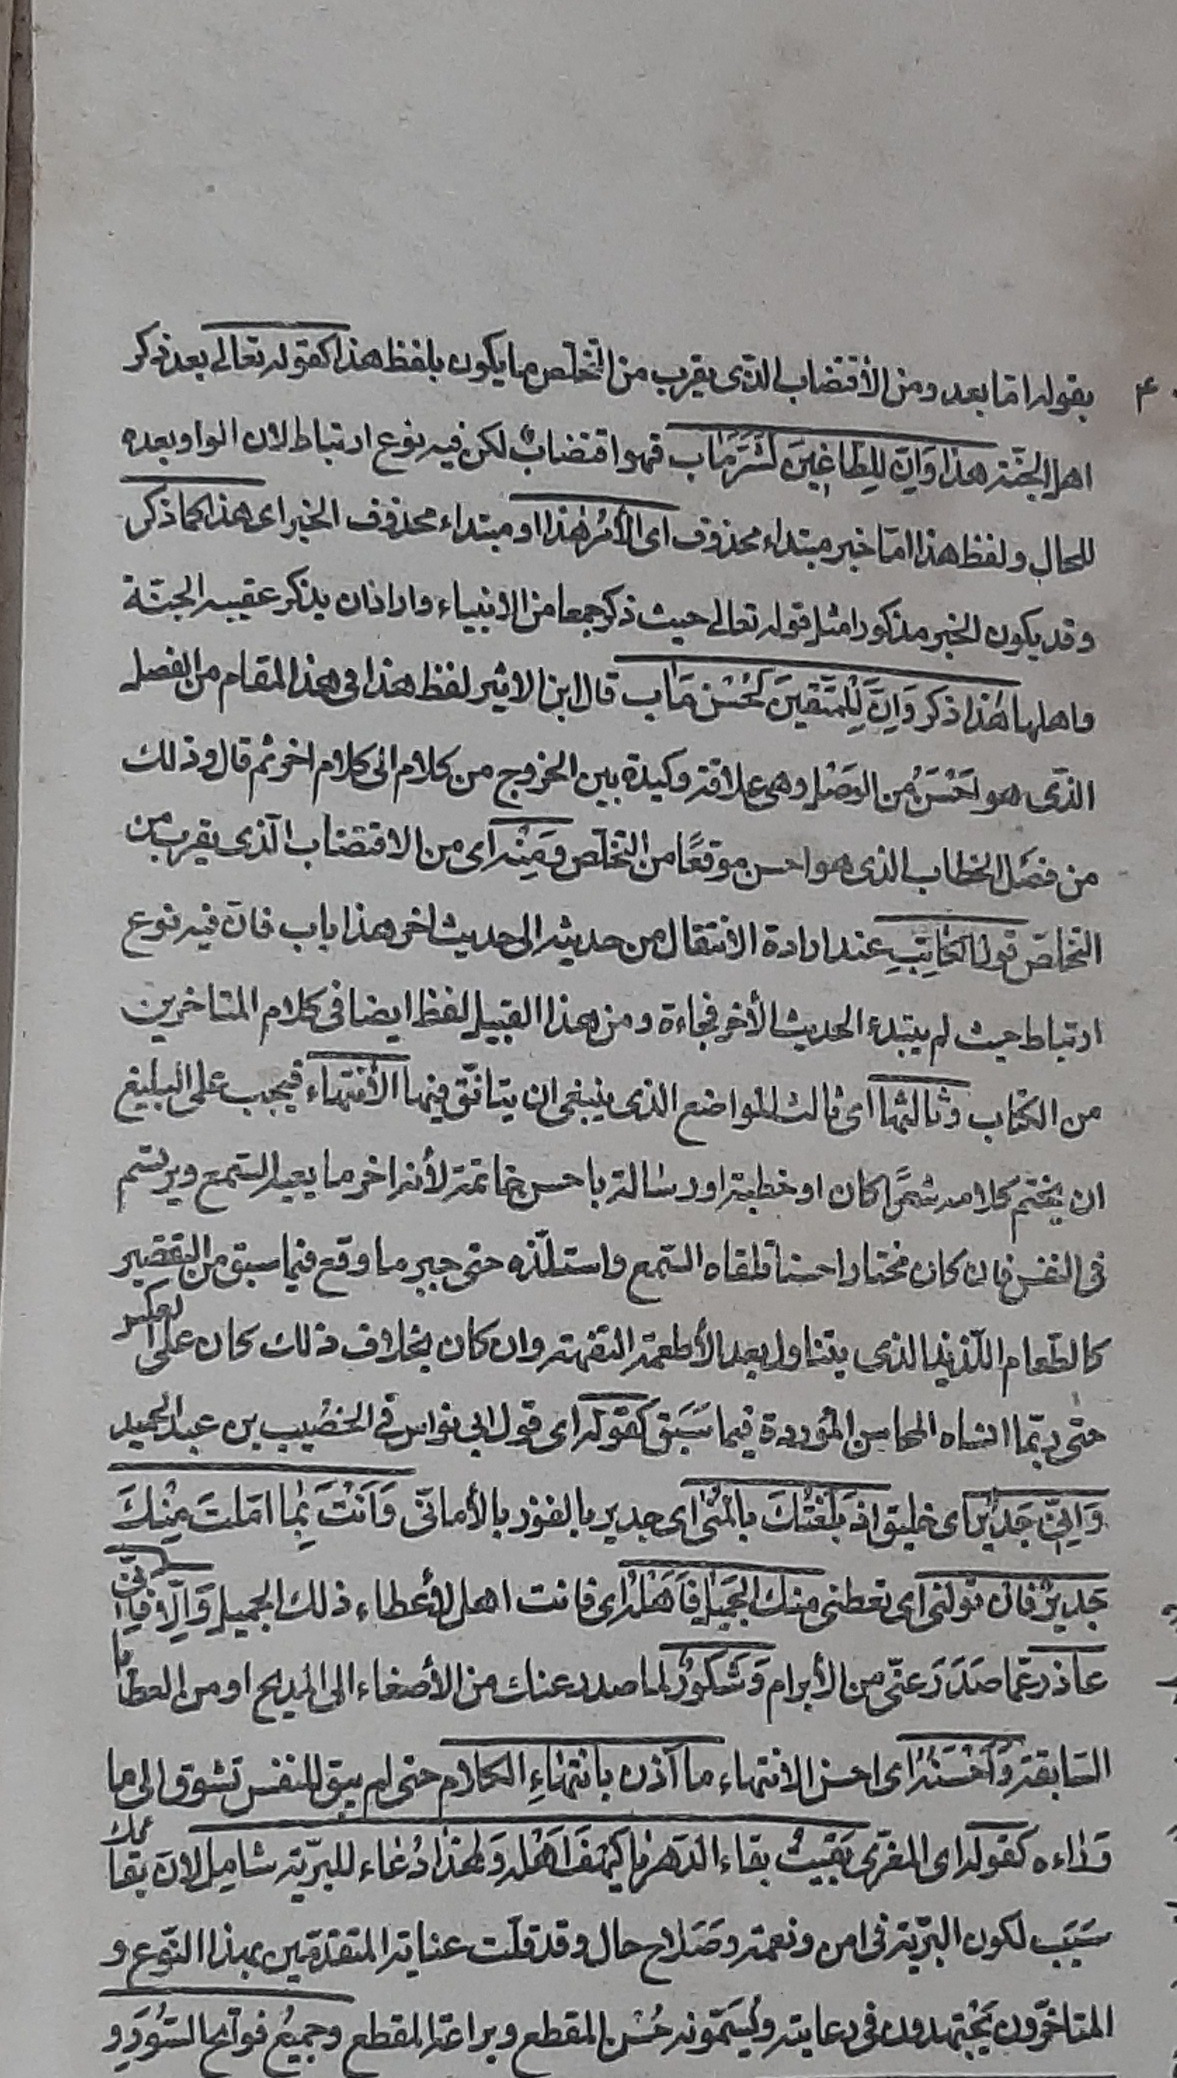 بقوله اما بعد ومن الأقتضاب الذى يقرب من التخلص ما يكون بلفظ هذا كقوله تعالى بعد ذكر
اهل الجنة هذا وَاِنَّ لِلطَّاغِينَ لَشَرَّ مَاٰب فهو اقتضابٌ لكن فيه نوع ارتباط لان الواو بعده
للحال ولفظ هذا امّا خبر مبتداء محذوف اى الأمْرُ هٰذا او مبتداء محذوف الخبر اى هذا كما ذكر
وقد يكون الخبر مذكورا مثل قوله تعالى حيث ذكر جمعا من الانبياء واراد ان يذكر عقيبه الجنّة
واهلها هٰذا ذكر وَاِنَّ لِلْمُتَّقينَ لَحُسْنَ مَاٰب قال ابن الاثير لفظ هذا فى هذا المقام من الفصل
الذّى هو اَحْسَنُ من الوَصْل وهى علاقة وكيدة بين الخروج من كلام الى كلام اخر ثم قال وذلك
من فصْل الخطاب الذى هو احسن موقعًا من التخلّص وَمِنْهُ اى من الاقتضاب الذى يقرب من
التخلّص قول الكاتِبِ عند ارادة الأنتقال من حديثه الى حديث اخر هذا باب فان فيه نوع
ارتباط حيث لم يبتدء الحديث الأخر فجاءة ومن هذا القبيل لفظ ايضا فى كلام المتاخرين
من الكتاب وثالثها اى ثالث المواضع الذى ينبغى ان يتانّق فيها الأنْتهاء فيجب على البليغ
ان يختم كلامه شعرًا كان او خطبة او رسالة باحسن خاتمة لأنه اخر ما يعيه السّمع ويرتسم
فى النفس فان كان مختارا حسنا تلقاه السّمع واستلذّه حتى جبر ما وقع فيما سبق من التقصير
كالطّعام اللّذيذ الذى يتناول بعد الأطعمة التفهة وان كان بخلاف ذلك كان على العكس
حتى ربّما انساه المحاسن الموُردة فيما سَبَق كقوله اى قول ابى نواس فى الخصيب بن عبد الحميد
وَاِنّى جَديرٌ اى خليق اذ بَلَغْتُكَ بالمُنٰى اى جدير بالفوز بالأمانّى وَاَنْتَ بِمٰا امّلتُ مِنْكَ
جَديرٌ فان تولنى اى تعطنى منك الجَميل فَاَهْلُهُ اى فانت اهل لأعطاء ذلك الجميل وَاِلّا فَاِنّى
عاذرٌ عمّا صَدَرَ عنّى من الأبرام وَشَكُورٌ لما صدر عنك من الأصغاء الى المديح او من العطايا
السّابقة وَاَحْسَنُهُ اى احسن الانتهاء ما آذن بانتهٰاءِ الكلام حتى لم يبق للنفس تشوّق الى ما
وراءه كقوله اى المعرّى بَقيتَ بقاء الدّهر يا كَهْفَ اَهْلِه وَهٰذا دُعٰاء للبريّة شامِل لان بقاءك
سَبَب لكون البريّة فى امن ونعمة وصَلاح حال وقد قلّت عناية المتقدّمين بهذا النّوع و
المتاخّرون يَجْتهدون فى رعايته ويُسَمّونه حُسْن المقطع وبراعة المقطع وجميعُ فواتح السّوَر و